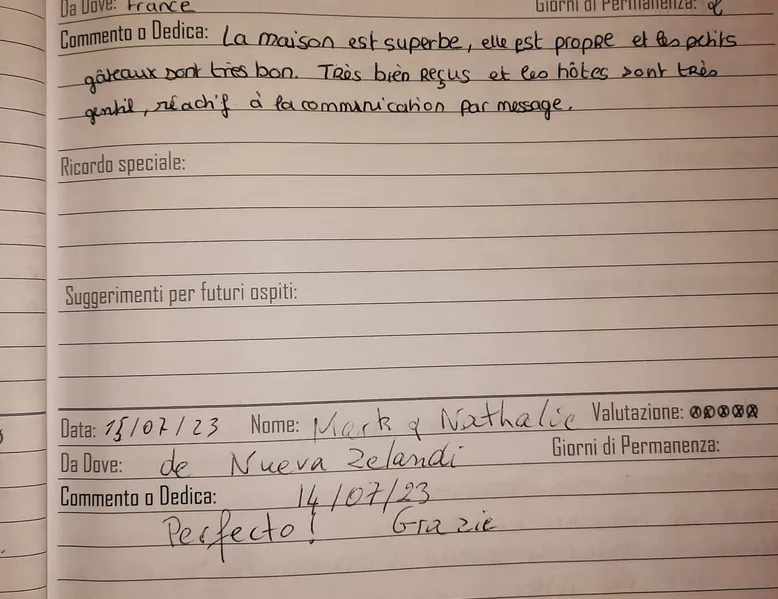 Da Dove: France Giorni di Permanenza: 2
Commento o Dedica: La maison est superbe, elle est propre et les petits
gâteaux sont très bon. Très bièn reçus et les hôtes sont très
gentil, réactif à la communication par message.
Ricordo speciale:
Suggerimenti per futuri ospiti:
Data: 15/07/23 Nome: Mark & Nathalie Valutazione:
Da Dove: de Nueva Zelandi Giorni di Permanenza:
Commento o Dedica: 14/07/23
Perfecto! Grazie